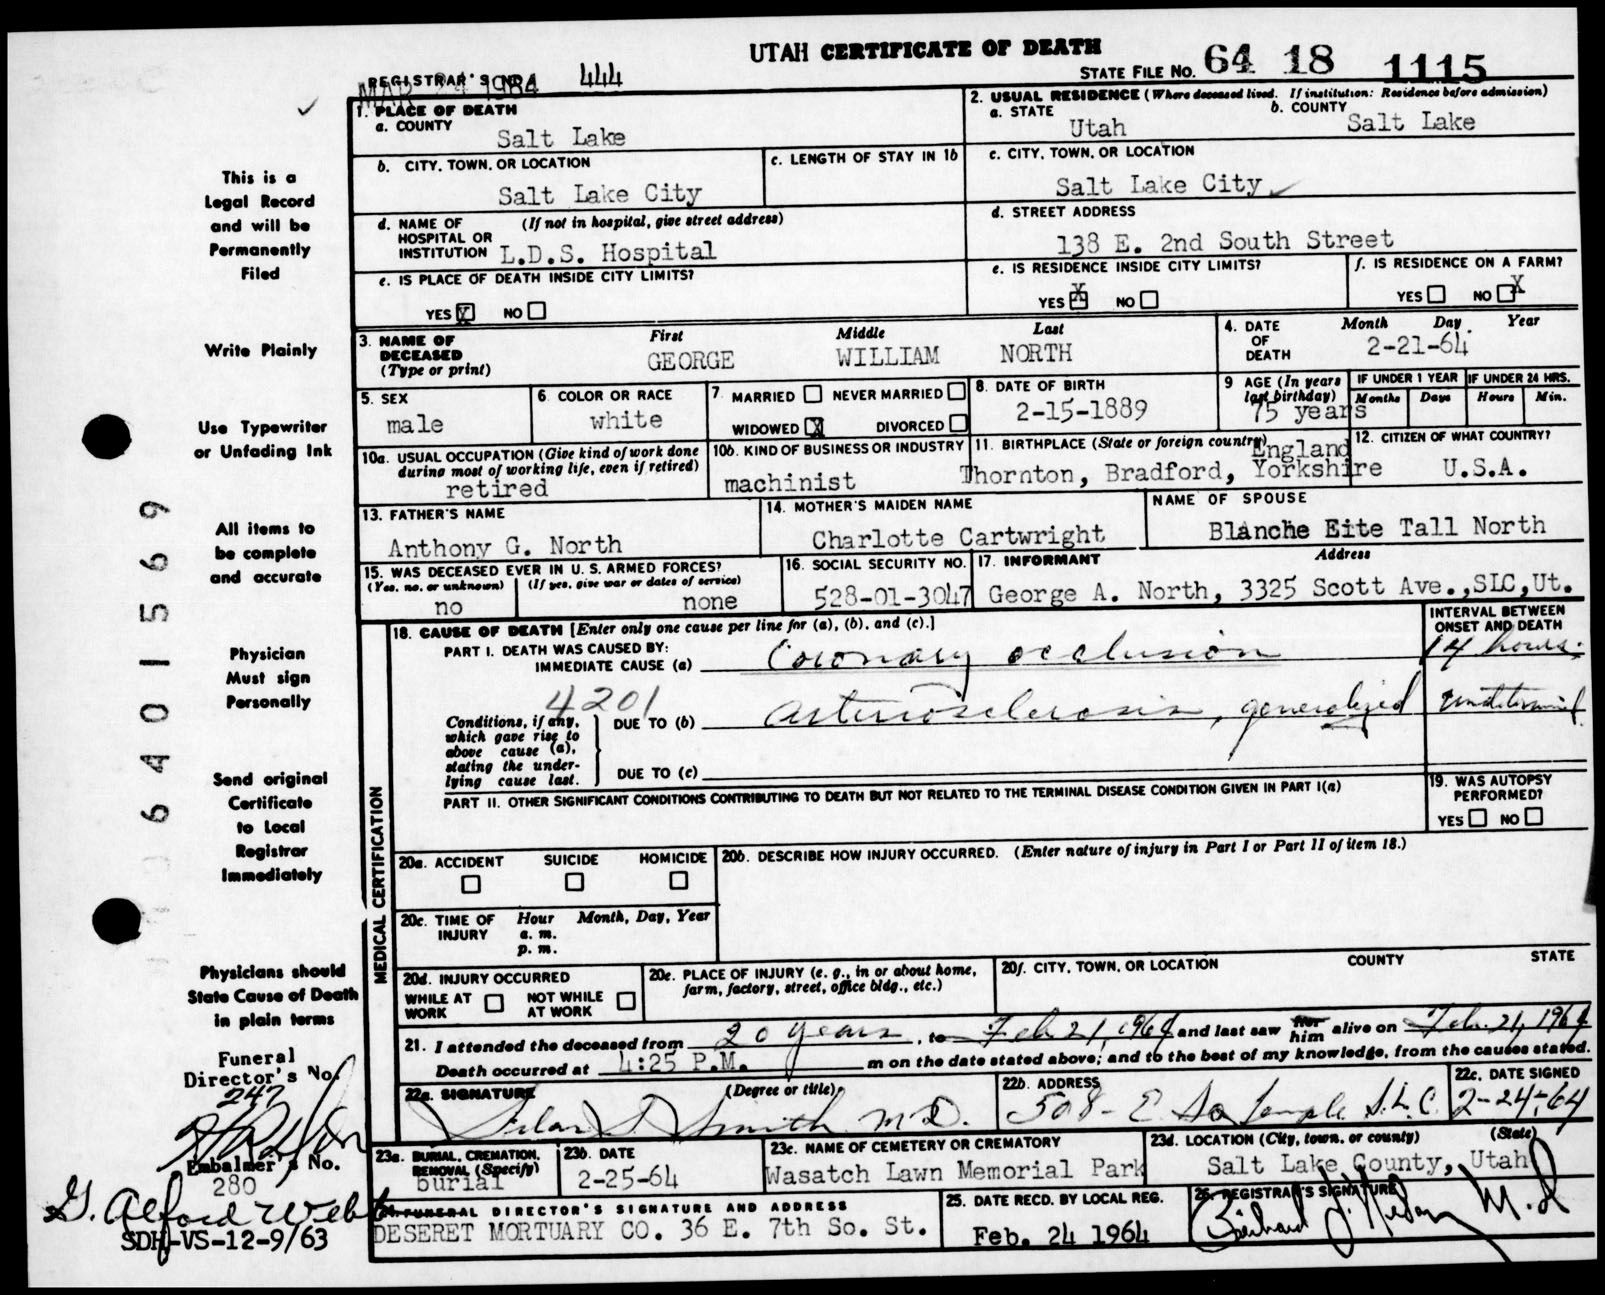 UTAH CERTIFICATE OF DEATH
STATE FILE NO. 64 18 1115
REGISTRAR'S NO. 444
1. PLACE OF DEATH
a. COUNTY
Salt Lake
2. USUAL RESIDENCE (Where deceased lived. If institution: Residence before admission)
a. STATE Utah
b. COUNTY Salt Lake
b. CITY, TOWN, OR LOCATION
Salt Lake City
c. LENGTH OF STAY IN 1b
c. CITY, TOWN, OR LOCATION
Salt Lake City
d. NAME OF HOSPITAL OR INSTITUTION (If not in hospital, give street address)
L.D.S. Hospital
d. STREET ADDRESS
138 E. 2nd South Street
e. IS PLACE OF DEATH INSIDE CITY LIMITS?
YES X NO
e. IS RESIDENCE INSIDE CITY LIMITS?
YES X NO
f. IS RESIDENCE ON A FARM?
YES NO X
3. NAME OF DECEASED (Type or print)
First Middle Last
GEORGE WILLIAM NORTH
4. DATE OF DEATH Month Day Year
2-21-64
5. SEX
male
6. COLOR OR RACE
white
7. MARRIED NEVER MARRIED
WIDOWED X DIVORCED
8. DATE OF BIRTH
2-15-1889
9 AGE (In years last birthday)
75 years
IF UNDER 1 YEAR Months Days
IF UNDER 24 HRS. Hours Min.
10a. USUAL OCCUPATION (Give kind of work done during most of working life, even if retired)
retired
10b. KIND OF BUSINESS OR INDUSTRY
machinist
11. BIRTHPLACE (State or foreign country)
England
Thornton, Bradford, Yorkshire
12. CITIZEN OF WHAT COUNTRY?
U.S.A.
13. FATHER'S NAME
Anthony G. North
14. MOTHER'S MAIDEN NAME
Charlotte Cartwright
NAME OF SPOUSE
Blanche Eite Tall North
15. WAS DECEASED EVER IN U. S. ARMED FORCES?
(Yes, no, or unknown) (If yes, give war or dates of service)
no none
16. SOCIAL SECURITY NO.
528-01-3047
17. INFORMANT Address
George A. North, 3325 Scott Ave.,SLC,Ut.
MEDICAL CERTIFICATION
18. CAUSE OF DEATH [Enter only one cause per line for (a), (b), and (c).]
INTERVAL BETWEEN ONSET AND DEATH
PART I. DEATH WAS CAUSED BY:
IMMEDIATE CAUSE (a) Coronary occlusion 14 hours.
4201
Conditions, if any, which gave rise to above cause (a), stating the underlying cause last.
DUE TO (b) arteriosclerosis, generalized
DUE TO (c)
PART II. OTHER SIGNIFICANT CONDITIONS CONTRIBUTING TO DEATH BUT NOT RELATED TO THE TERMINAL DISEASE CONDITION GIVEN IN PART I(a)
19. WAS AUTOPSY PERFORMED?
YES NO
20a. ACCIDENT SUICIDE HOMICIDE
20b. DESCRIBE HOW INJURY OCCURRED. (Enter nature of injury in Part I or Part II of item 18.)
20c. TIME OF INJURY Hour Month, Day, Year
a. m.
p. m.
20d. INJURY OCCURRED
WHILE AT WORK NOT WHILE AT WORK
20e. PLACE OF INJURY (e. g., in or about home, farm, factory, street, office bldg., etc.)
20f. CITY, TOWN, OR LOCATION COUNTY STATE
21. I attended the deceased from 20 years, to Feb 21, 1964 and last saw her him alive on Feb. 21, 1964
Death occurred at 4:25 P.M. m on the date stated above; and to the best of my knowledge, from the causes stated.
22a. SIGNATURE (Degree or title)
Silas S Smith M.D.
22b. ADDRESS
508 - E So Temple S.L.C.
22c. DATE SIGNED
2-24-64
23a. BURIAL, CREMATION, REMOVAL (Specify)
burial
23b. DATE
2-25-64
23c. NAME OF CEMETERY OR CREMATORY
Wasatch Lawn Memorial Park
23d. LOCATION (City, town, or county) (State)
Salt Lake County, Utah
24. FUNERAL DIRECTOR'S SIGNATURE AND ADDRESS
DESERET MORTUARY CO. 36 E. 7th So. St.
25. DATE RECD. BY LOCAL REG.
Feb. 24 1964
26. REGISTRAR'S SIGNATURE
M.D
This is a
Legal Record
and will be
Permanently
Filed
Write Plainly
Use Typewriter
or Unfading Ink
All items to
be complete
and accurate
Physician
Must sign
Personally
Send original
Certificate
to Local
Registrar
Immediately
Physicians should
State Cause of Death
in plain terms
Funeral
Director's No.
247
Embalmer's No.
280
G. Alford Webb
SDH-VS-12-9/63
6401569